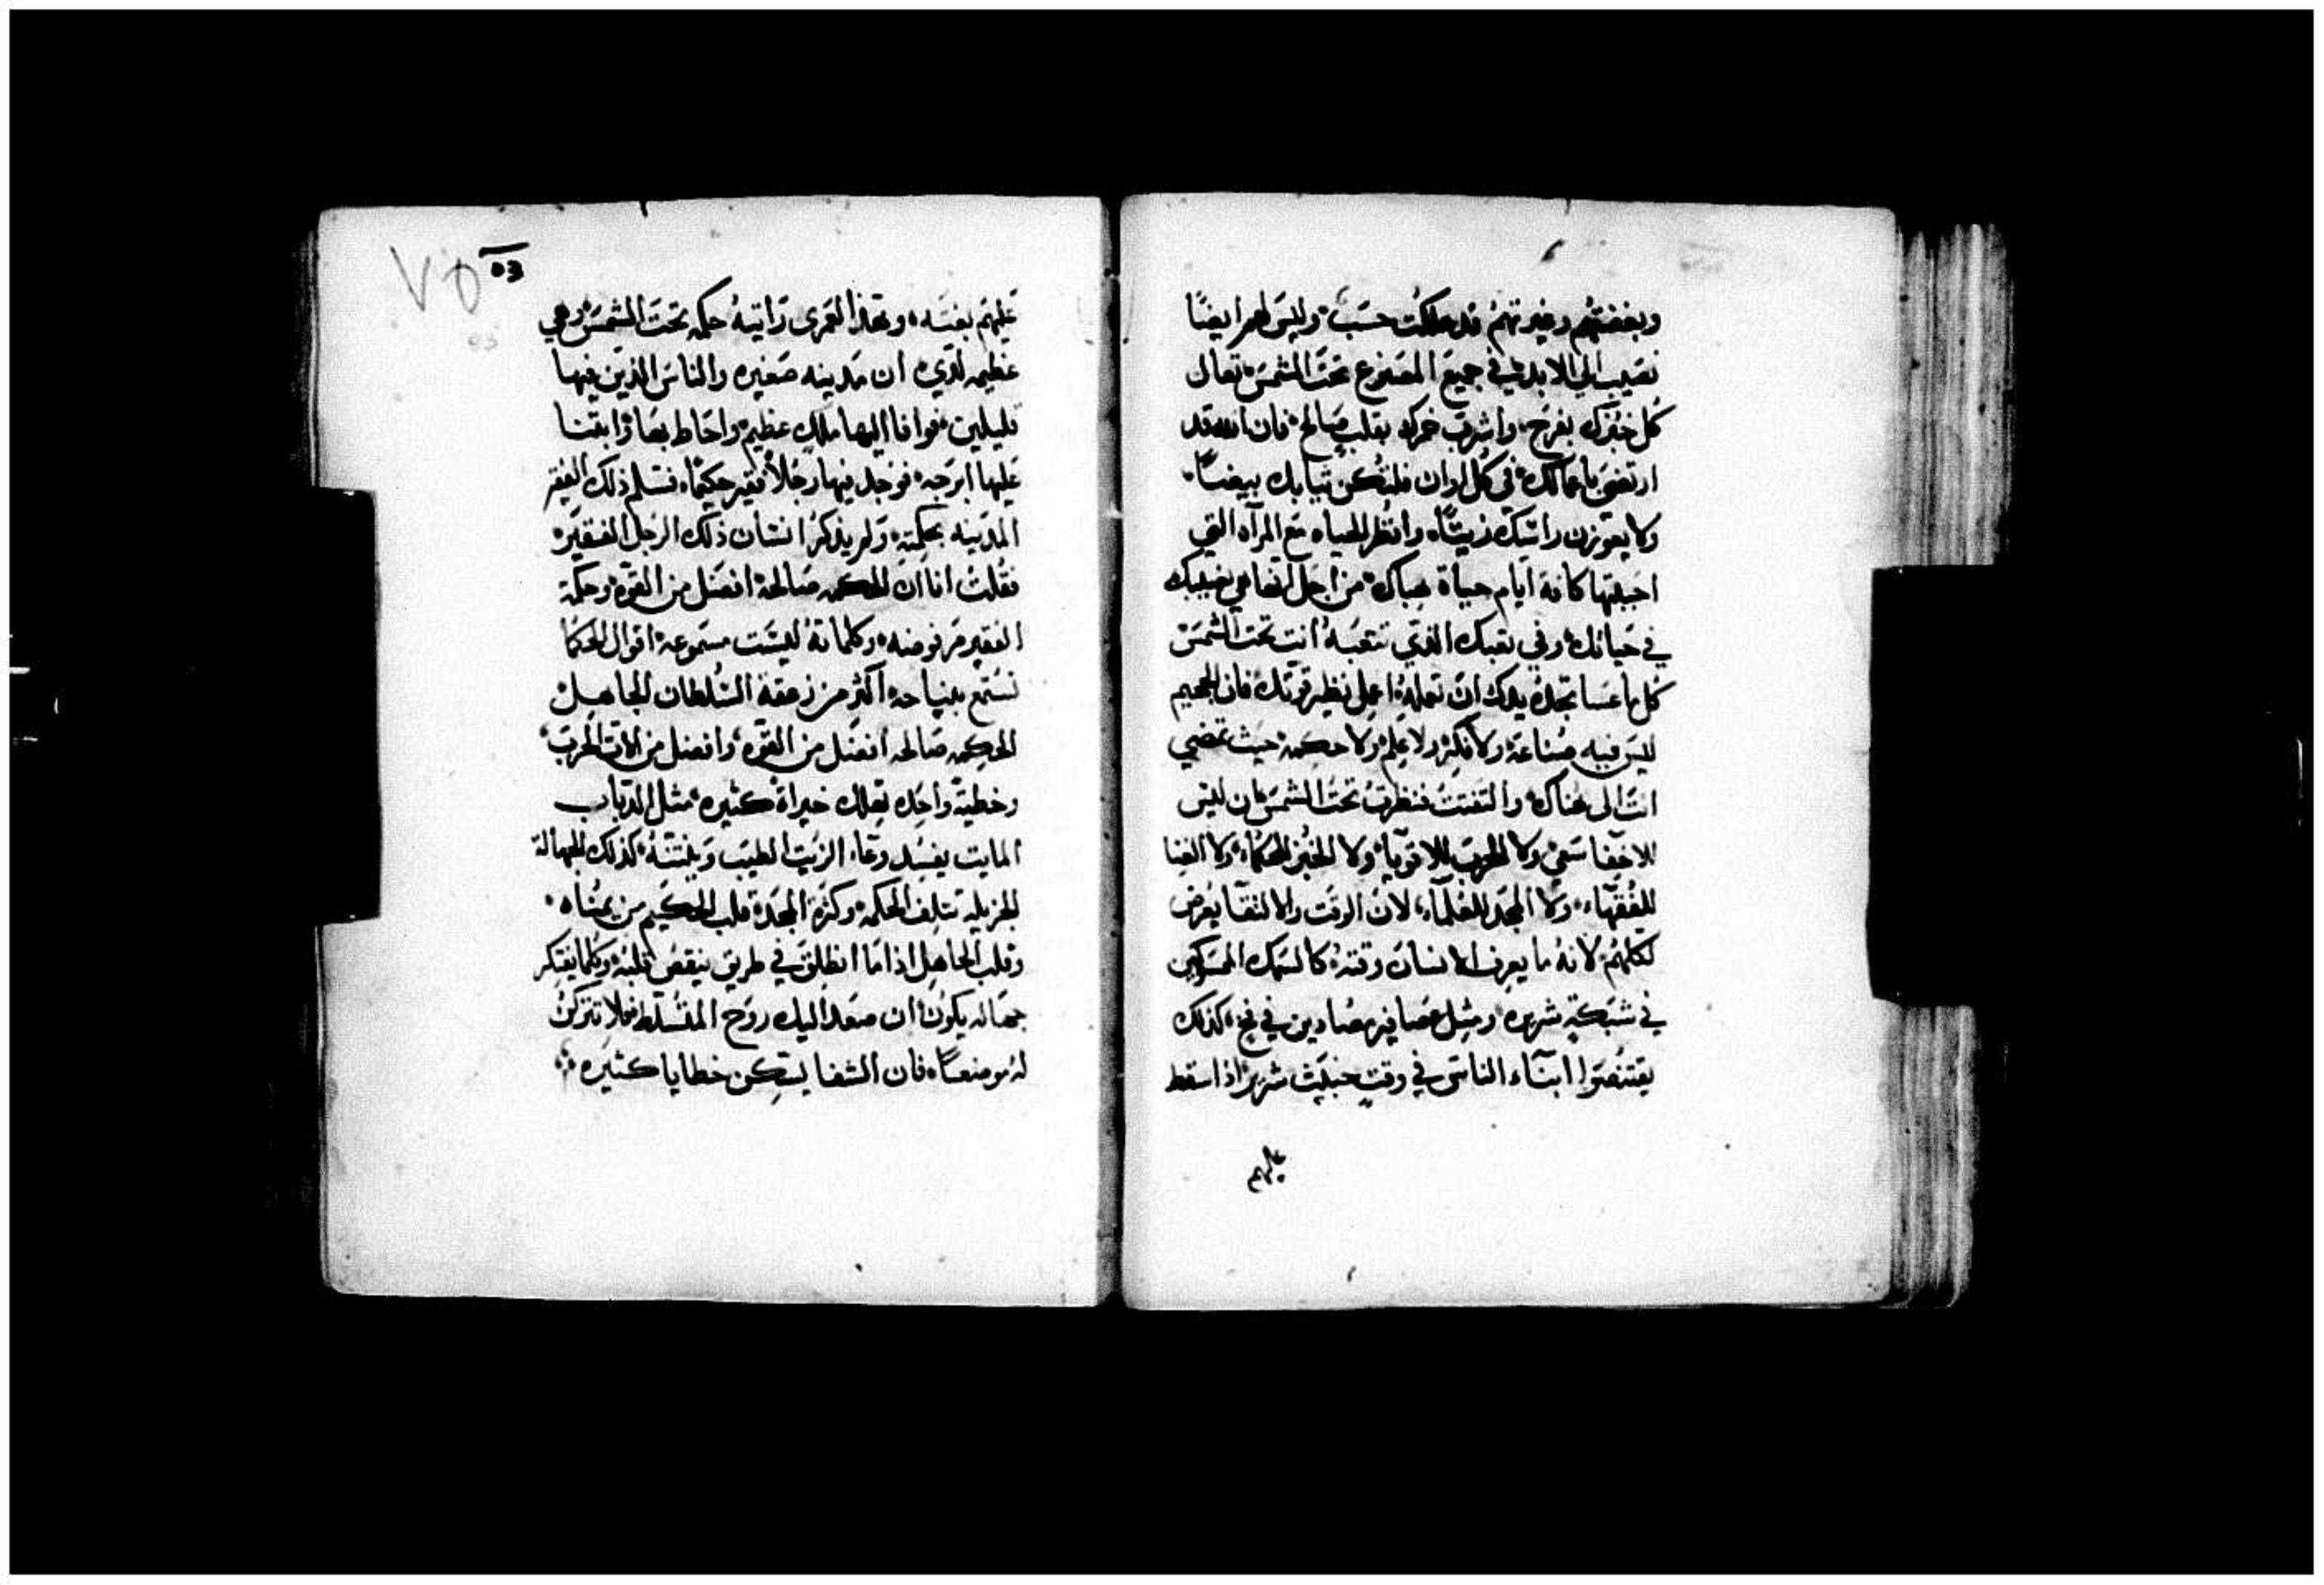 وبغضتهم وغيرتهم قد هلكت حسب وليس لهم ايضًا
نصيب الي الابد في جميع المصنوع تحت الشمس تعال
كل خبزك بفرح واشرب خمرك بقلب صالح فان الله قد
ارتضي باعمالك في كل اوان فلتكن ثيابك بيضًا
ولا يعوزن راسك زيتًا وانظر الحياه مع المرآه التي
احببتها كافة ايام حياة صباك من اجل انها هي نصيبك
في حياتك وفي تعبك الذي تتعبه انت تحت الشمس
كل ما عسا تجده يدك ان تعمله اعمل نظير قوتك فان الجحيم
ليس فيه صناعة ولا فكر ولا علم ولا حكمه حيث تمضي
انت الى هناك والتفتت فنظرت تحت الشمس ان ليس
للاخفا سعي ولا الحرب للاقويا ولا الخبز للحكماء ولا الغنا
للفقهاء ولا المجد للعلماء لان الوقت والالتقا يعرض
لكلهم لانه ما يعرف الانسان وقته كالسمك
في شبكة شريره ومثل عصافير مصادين في فخ كذلك
يقتنصوا ابناء الناس في وقت خبيث شرير اذا سقط
عليهم
03
٧٥
عليهم بغتسه وهذا لعمرى راتيه حكمه تحت الشمس وهي
عظيمه لدي ان مدينه صغيره والناس الذين فيها
قليلين فوافا اليها ملك عظيم واحاط بها وابتنا
عليها ابرجه فوجد فيها رجلاً فقير حكيمًا فتسلم ذلك الفقير
المدينه بحكمته ولم يذكر انسان ذلك الرجل الفقير
فقلت انا ان الحكمه صالحه افضل من القوه وحكمة
الفقير مرفوضه وكلماته ليست مسموعه اقوال الحكما
تستمع بنياحه اكثر من زعقة السلطان الجاهل
الحكمه صالحه افضل من القوه وافضل من الات الحرب
وخطية واحده تهلك خيراة كثيره مثل الذباب
المايت يفسد وعاء الزيت الطيب وينتنه كذلك الجهالة
الجزيله تتلف الحكمه وكثرة المجد قلب الحكيم من يمناه
وقلب الجاهل اذا ما انطلق في طريق ينقص قلبه وكلما يفتكر
جهاله يكون ان صعد اليك روح المتسلط فلا تتركن
له موضعًا فان الشفا يسكن خطايا كثيره